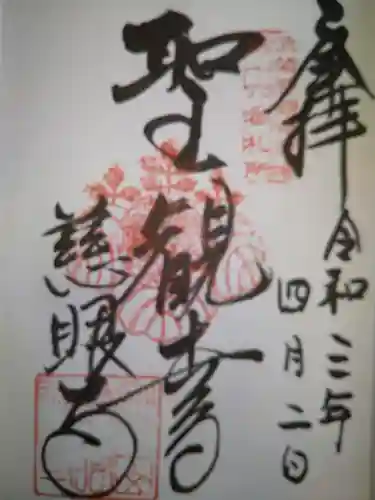 奉拝
令和三年
四月二日
聖観音
慈眼寺